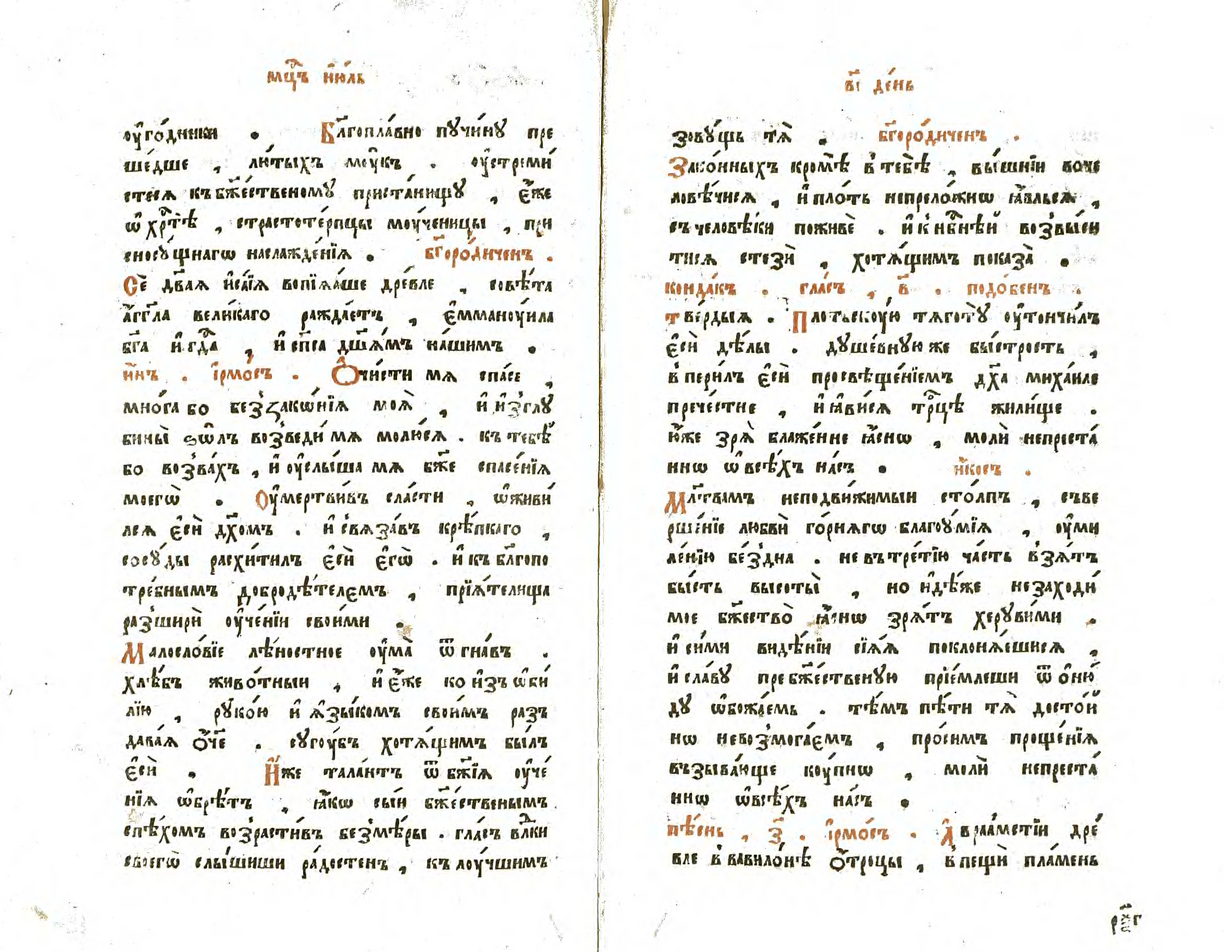 мцⷭ҇ъ і҆ю́ль
оу҆го́дники . Бл҃гопла́вно пꙋчи́нꙋ пре
ше́дше , лю́тыхъ моу́къ . оу҆стреми́
стеся къ бж҃е́ственомꙋ приста́нищꙋ , є҆́же
ѡ҆ хрⷭ҇тѣ̀ , страстоте́рпцы моу́ченицы , при
сносꙋ́щнагѡ наслажде́нїѧ . бг҃оро́диченъ .
Сѐ два́ѧ и҆са́їѧ вопїѧ́ше дре́вле , совѣ́та
а҆́гг҃ла вели́каго ражда́етъ , є҆ммано́уила
бг҃а и҆ гдⷭ҇а , и҆ сп҃са дш҃а́мъ на́шимъ .
и҆́нъ . і҆рмо́съ . Ѻ҆чи́сти мѧ спа́се ,
мно́га бо без̾зако́нїѧ моѧ̀ , и҆ и҆зглꙋ
бины̀ ѕѡ́лъ возведи́ мѧ молю́сѧ . къ тебѣ́
бо воззва́хъ , и҆ оу҆слы́ша мѧ бж҃е спасе́нїѧ
моегѡ̀ . Оу҆мертви́въ сла́сти , ѡ҆живи́
лсѧ є҆сѝ дх҃омъ . и҆ свѧза́въ крѣ́пкаго ,
сосꙋ́ды расхи́тилъ є҆сѝ є҆гѡ̀ . и҆ къ бл҃гопо
тре́бнымъ добродѣ́телемъ , прїѧ́телища
разширѝ оу҆че́нїи свои́ми .
Малосло́вїе лѣ́ностное оу҆ма̀ ѿгна́въ .
хлѣ́бъ живо́тныи , и҆ є҆́же ко и҆зъѡби́
лїю , рꙋко́ю и҆ ѧ҆зы́комъ свои́мъ раз
дава́ѧ ѻ҆́ч҃е . сꙋгоу́бъ хотѧ́щимъ бы́лъ
є҆сѝ . И҆́же тала́нтъ ѿ бж҃їѧ оу҆че́
нїѧ ѡ҆брѣ́тъ , ꙗ҆́кѡ сы́и бж҃е́ственымъ
спѣ́хомъ возрасти́въ безмѣ́ры . гла́съ влⷣки
своегѡ̀ слы́шиши ра́достенъ , къ лоу́чшимъ
в҃і де́нь
зовꙋ́щъ тѧ̀ . бг҃оро́диченъ .
Зако́нныхъ кромѣ̀ в̾тебѣ̀ , вы́шнїи воче
ловѣ́чисѧ , и҆ пло́ть непрело́жнѡ ꙗ҆́вльсѧ ,
съ человѣ́ки поживѐ . и҆ к̾нбⷭ҇нѣ́й возвыси́
тисѧ стезѝ , хотѧ́щимъ показа̀ .
конда́къ . гла́съ , в҃ . подо́бенъ .
тве́рдыѧ . Пло́тьскоую тѧготꙋ̀ оу҆тончи́лъ
є҆сѝ дѣ́лы . дꙋше́внꙋю же бы́строть ,
в̾пери́лъ є҆сѝ просвѣще́нїемъ дх҃а миха́иле
пречестне , и҆ ꙗ҆ви́сѧ трⷪ҇цѣ жили́ще .
ю҆́же зрѧ̀ блаже́нне ꙗ҆́снѡ , молѝ непреста́
ннѡ ѡ҆ всѣ́хъ на́съ . и҆́косъ .
Мл҃твамъ неподви́жимыи сто́лпъ , съве
рше́нїе любвѝ го́рнѧгѡ благоу́мїѧ , оу҆ми
ле́нїю бе́здна . не въ тре́тїю ча́сть взѧ́тъ
бы́сть высоты̀ , но и҆дѣ́же незаходи́
мое бж҃ество̀ ꙗ҆́снѡ зрѧ́тъ херꙋви́ми .
и҆ си́ми видѣ́нїи сїѧ́ѧ поклонѧ́ешисѧ ,
и҆ сла́вꙋ пребж҃е́ственꙋю прїе́млеши ѿ ѻ҆ню́
дꙋ ѡ҆божа́емь . тѣ́мъ пѣ́ти тѧ̀ досто́й
нѡ невозмога́емъ , про́симъ проще́нїѧ
възыва́юще коу́пнѡ , молѝ непреста́
ннѡ ѡ҆ всѣ́хъ на́съ .
пѣ́снь , з҃ . і҆рмо́съ . А҆враа́мстїи дре́
вле в̾вавило́нѣ ѻ҆́троцы , в̾пещѝ пла́мень
рог҃